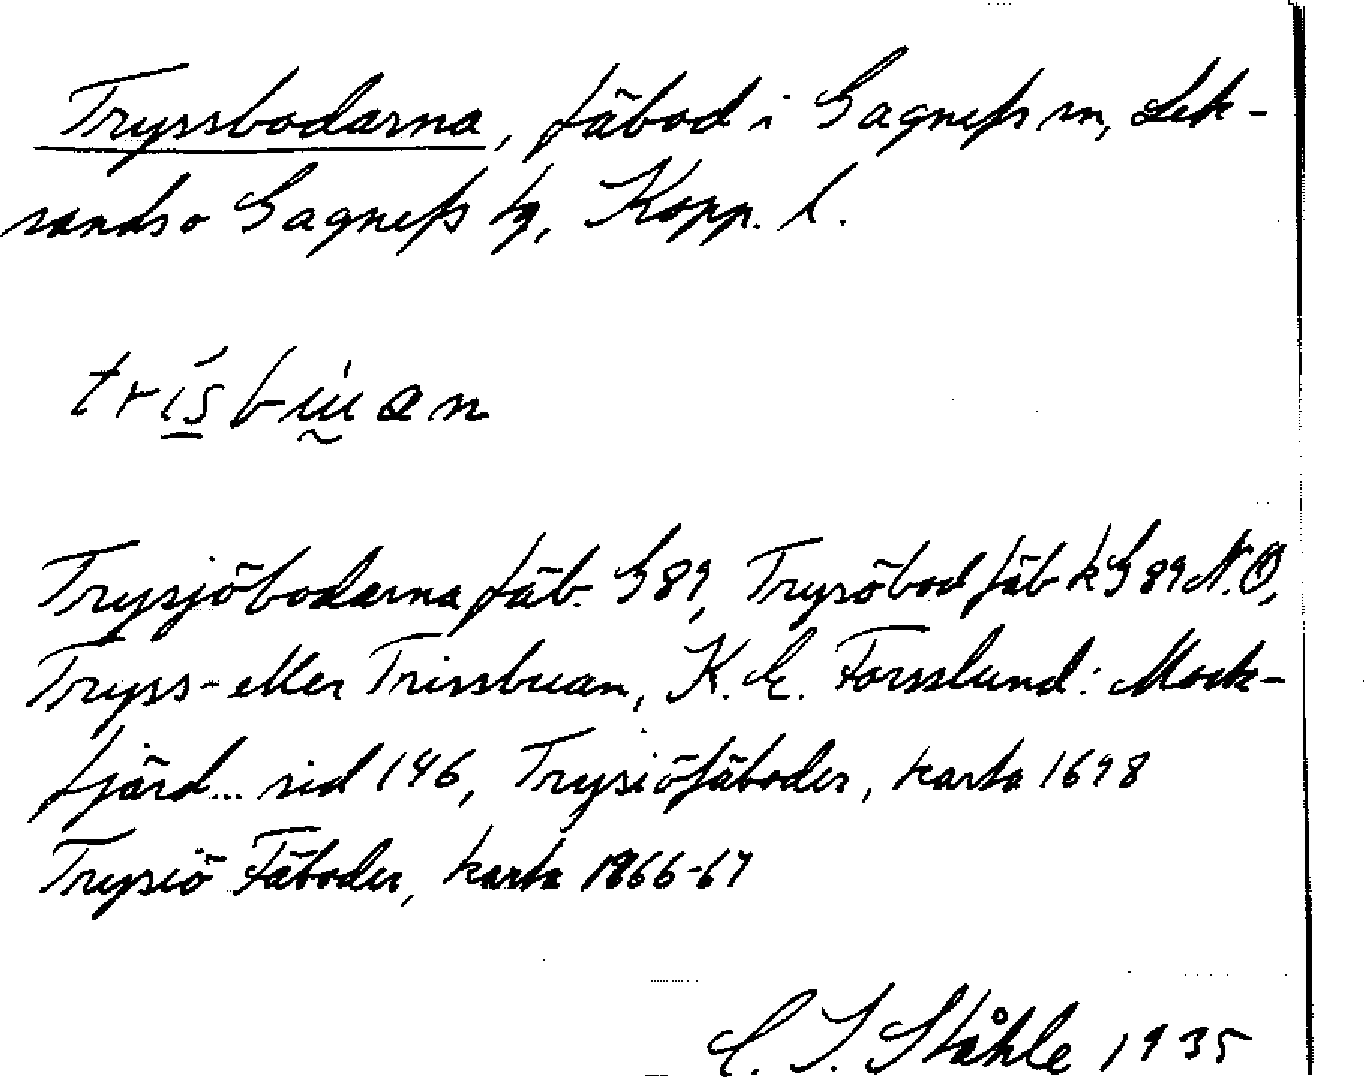 Tryssbodarna, fäbod i Gagnefs sn, Lek-
sands o Gagnefs tg, Kopp. l.
trísbu̇̀an
Trysjöbodarna fäb. G89, Trysöbod fäb k G89 N.O,
Tryss- eller Trissbuan, K. E. Forsslund: Mock-
fjärd... sid 146, Trysiöfäboder, karta 1698
Trysiö Fäboder, karta 1866-67
C. I. Ståhle 1935